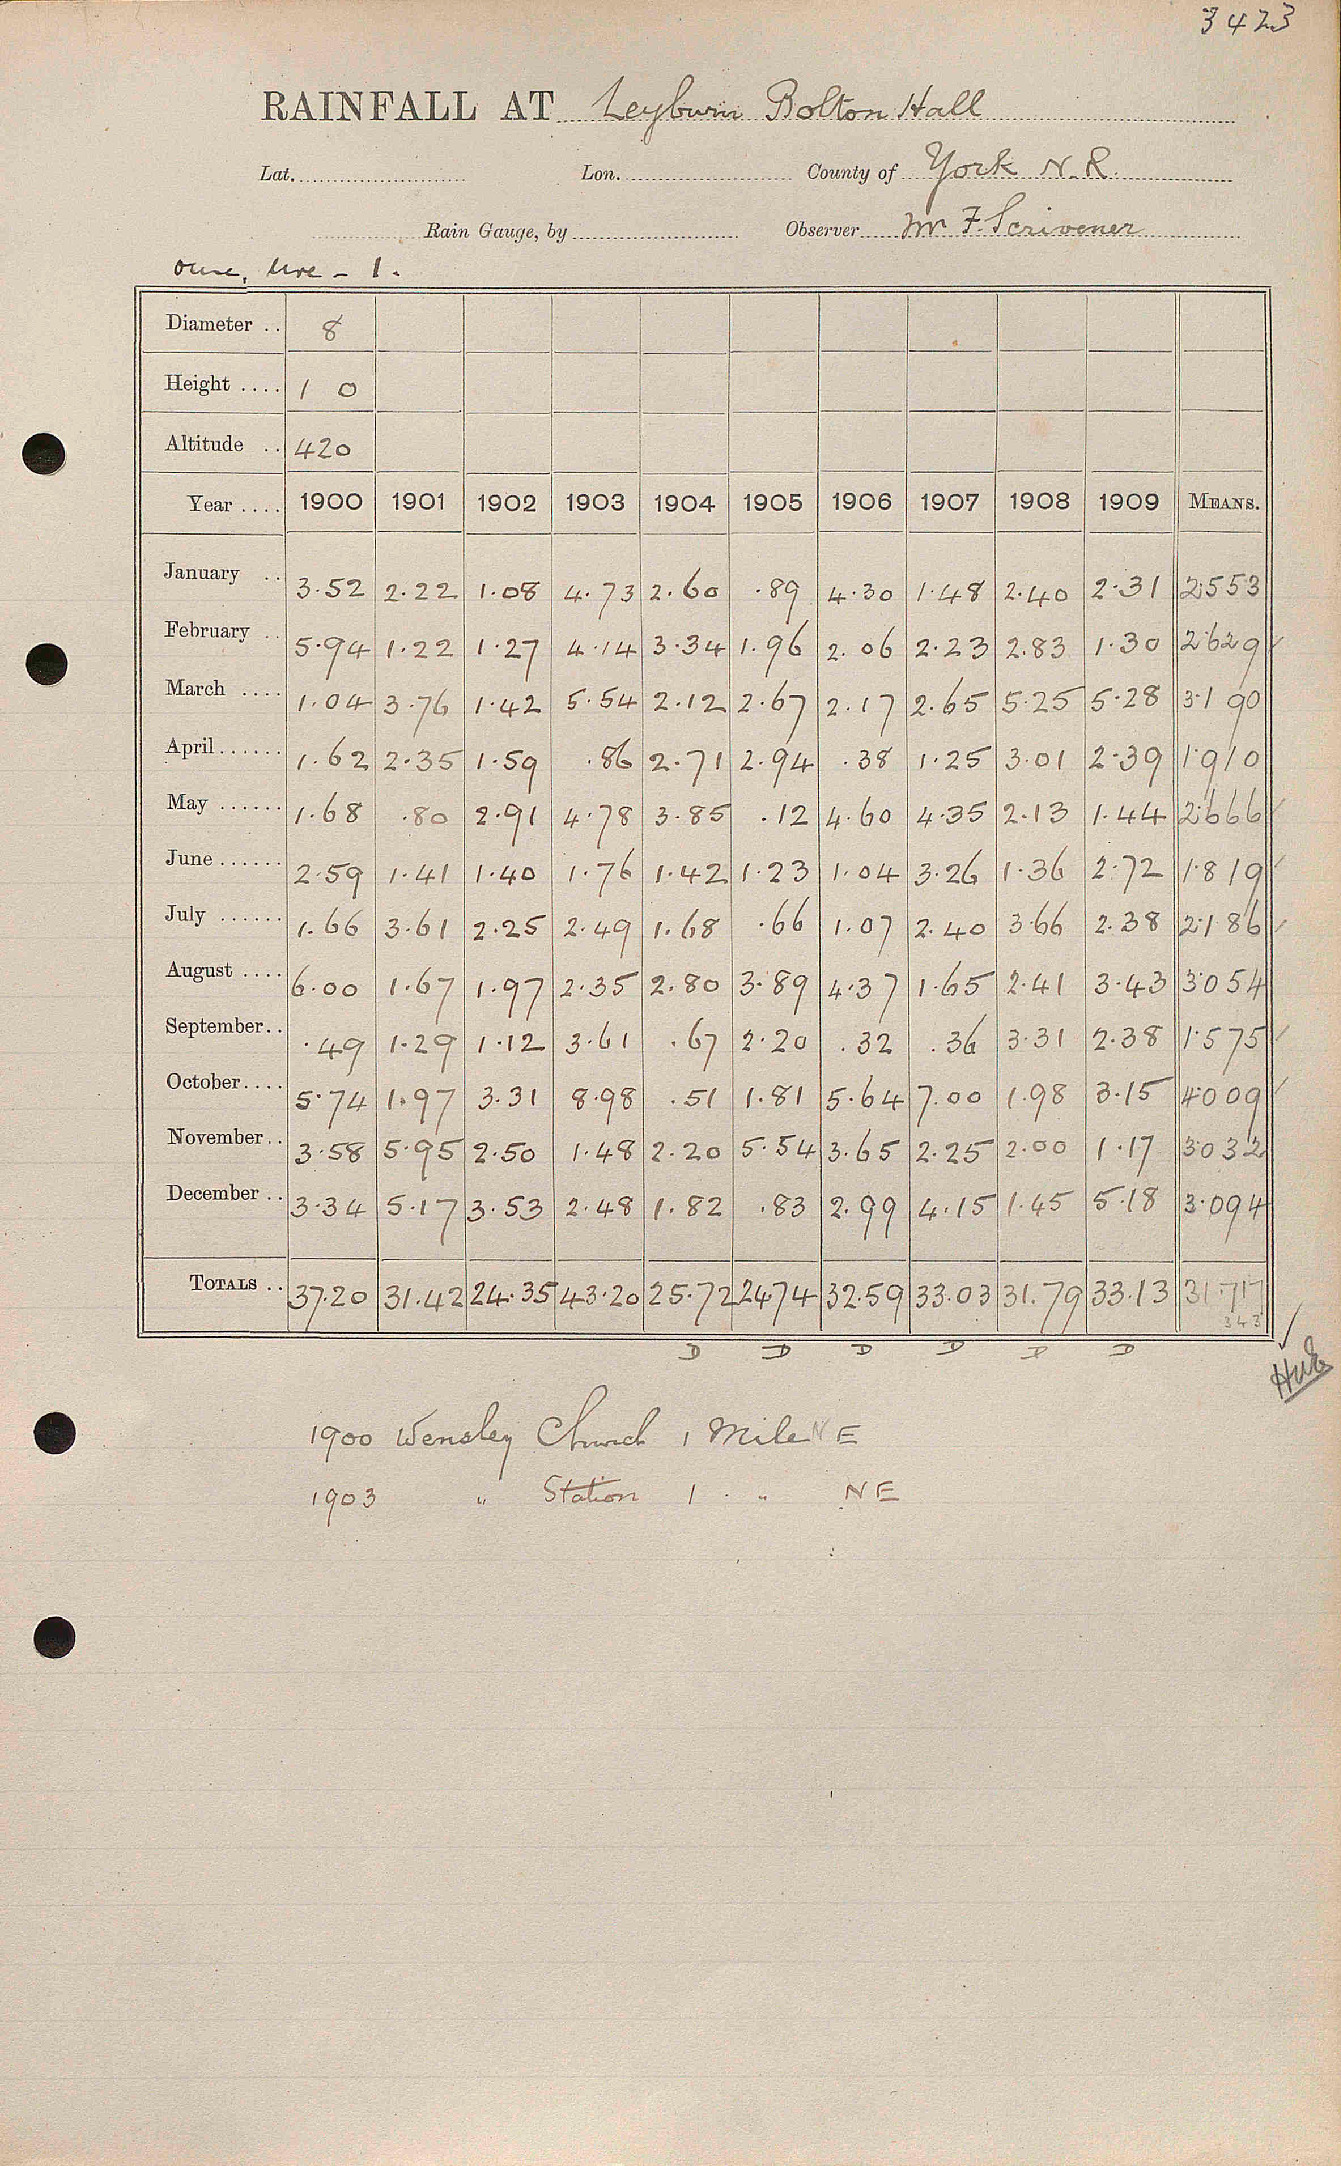 3423
RAINFALL AT Leyburn Bolton Hall
Lat. Lon. County of York N.R.
Rain Gauge, by Observer Mr F. Scrivener
Ouse, Ure - 1.
Diameter .. 8
Height .... 1 0
Altitude .. 420
Year .... 1900 1901 1902 1903 1904 1905 1906 1907 1908 1909 MEANS.
January .. 3.52 2.22 1.08 4.73 2.60 .89 4.30 1.48 2.40 2.31 2.553
February .. 5.94 1.22 1.27 4.14 3.34 1.96 2.06 2.23 2.83 1.30 2.629
March .... 1.04 3.76 1.42 5.54 2.12 2.67 2.17 2.65 5.25 5.28 3.190
April ...... 1.62 2.35 1.59 .86 2.71 2.94 .38 1.25 3.01 2.39 1.910
May ...... 1.68 .80 2.91 4.78 3.85 .12 4.60 4.35 2.13 1.44 2.666
June ...... 2.59 1.41 1.40 1.76 1.42 1.23 1.04 3.26 1.36 2.72 1.819
July ...... 1.66 3.61 2.25 2.49 1.68 .66 1.07 2.40 3.66 2.38 2.186
August .... 6.00 1.67 1.97 2.35 2.80 3.89 4.37 1.65 2.41 3.43 3.054
September .. .49 1.29 1.12 3.61 .67 2.20 .32 .36 3.31 2.38 1.575
October .... 5.74 1.97 3.31 8.98 .51 1.81 5.64 7.00 1.98 3.15 4.009
November .. 3.58 5.95 2.50 1.48 2.20 5.54 3.65 2.25 2.00 1.17 3.032
December .. 3.34 5.17 3.53 2.48 1.82 .83 2.99 4.15 1.45 5.18 3.094
TOTALS .. 37.20 31.42 24.35 43.20 25.72 24.74 32.59 33.03 31.79 33.13 31.717
343
D D D D D D
1900 Wensley Church 1 Mile NE
1903 " Station 1 " NE